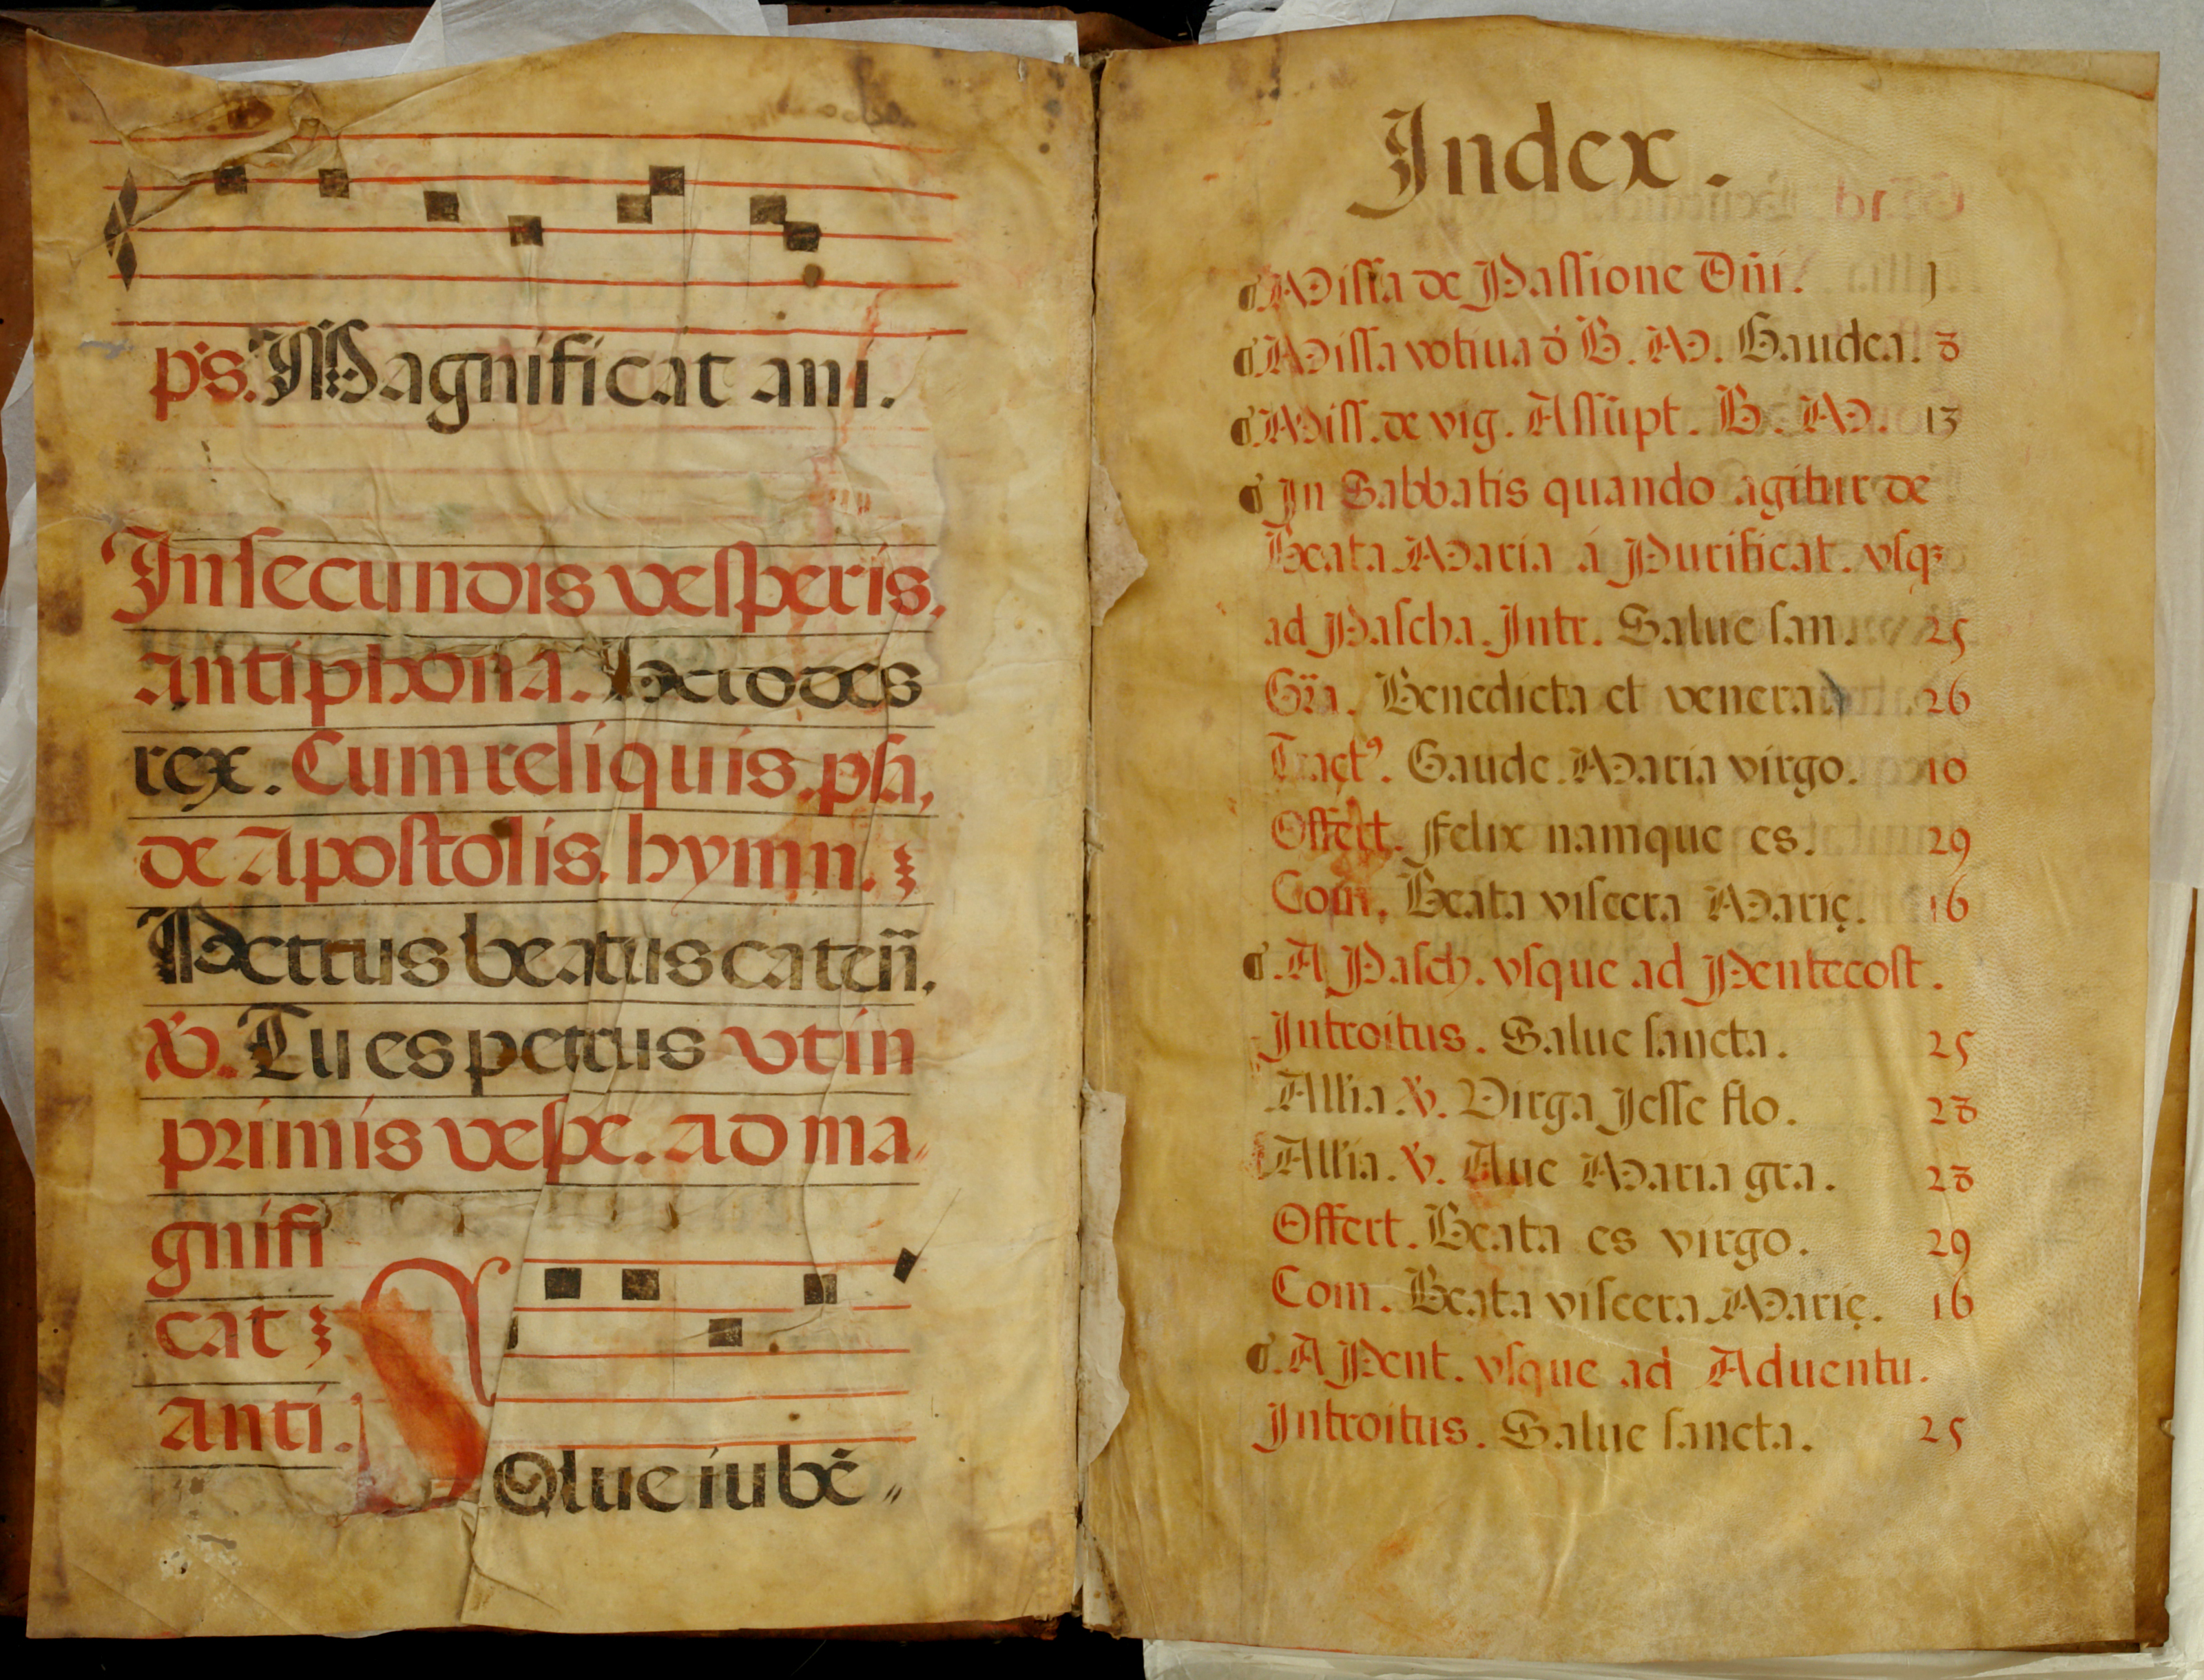 ps. Magnificat ani.
In secundis vesperis.
antiphona. Herodes
rex. Cum reliquis. ps,
de Apostolis. hymn.
Petrus beatus caten̄.
℣. Tu es petrus vt in
primis vespe. ad ma
gnifi
cat
Anti.
Solue iubē
Index.
Missa de Passione Dn̄i. 1
Missa votiua d B. M. Gaudea. 8
Miss. de vig. Assūpt. B. M. 13
In Sabbatis quando agitur de
Beata Maria á Purificat. vsq;
ad Pascha. Intr. Salue san. 25
Gr̄a. Benedicta et venera 26
Tract⁹. Gaude Maria virgo. 10
Offert. Felix namque es. 29
Com. Beata viscera Marię. 16
A Pasch. vsque ad Pentecost.
Introitus. Salue sancta. 25
All'ia. ℣. Virga Jesse flo. 28
All'ia. ℣. Aue Maria gra. 28
Offert. Beata es virgo. 29
Com. Beata viscera Marię. 16
A Pent. vsque ad Aduentu.
Introitus. Salue sancta. 25